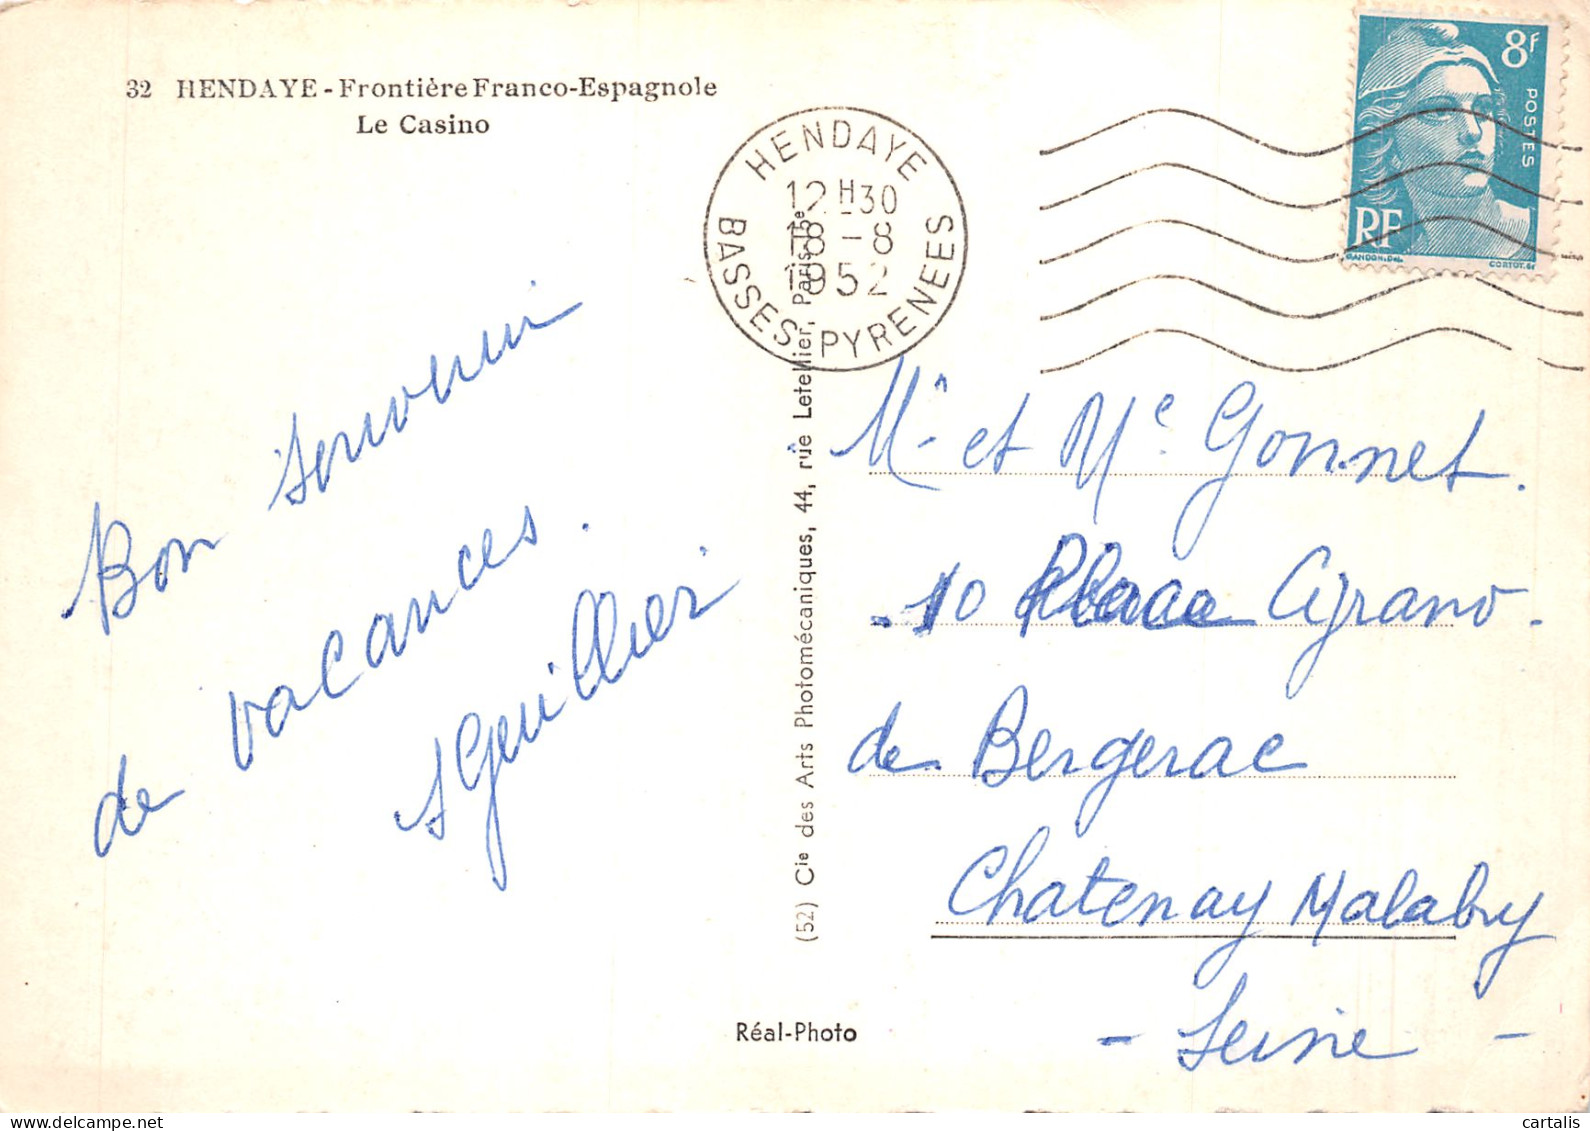 32 HENDAYE - Frontière Franco-Espagnole
Le Casino
HENDAYE
12H30
18-8
1952
BASSES-PYRENEES
8F
POSTES
RF
GANDON. DEL.
CORTOT. SC
Bon souvenir
de vacances.
Guillier
(52) Cie des Arts Photomécaniques, 44, rue Letellier, Paris-15e
Mr et Me Gonnet.
10 Place Cyrano.
de Bergerac
Chatenay Malabry
- Seine -
Réal-Photo
cartalis